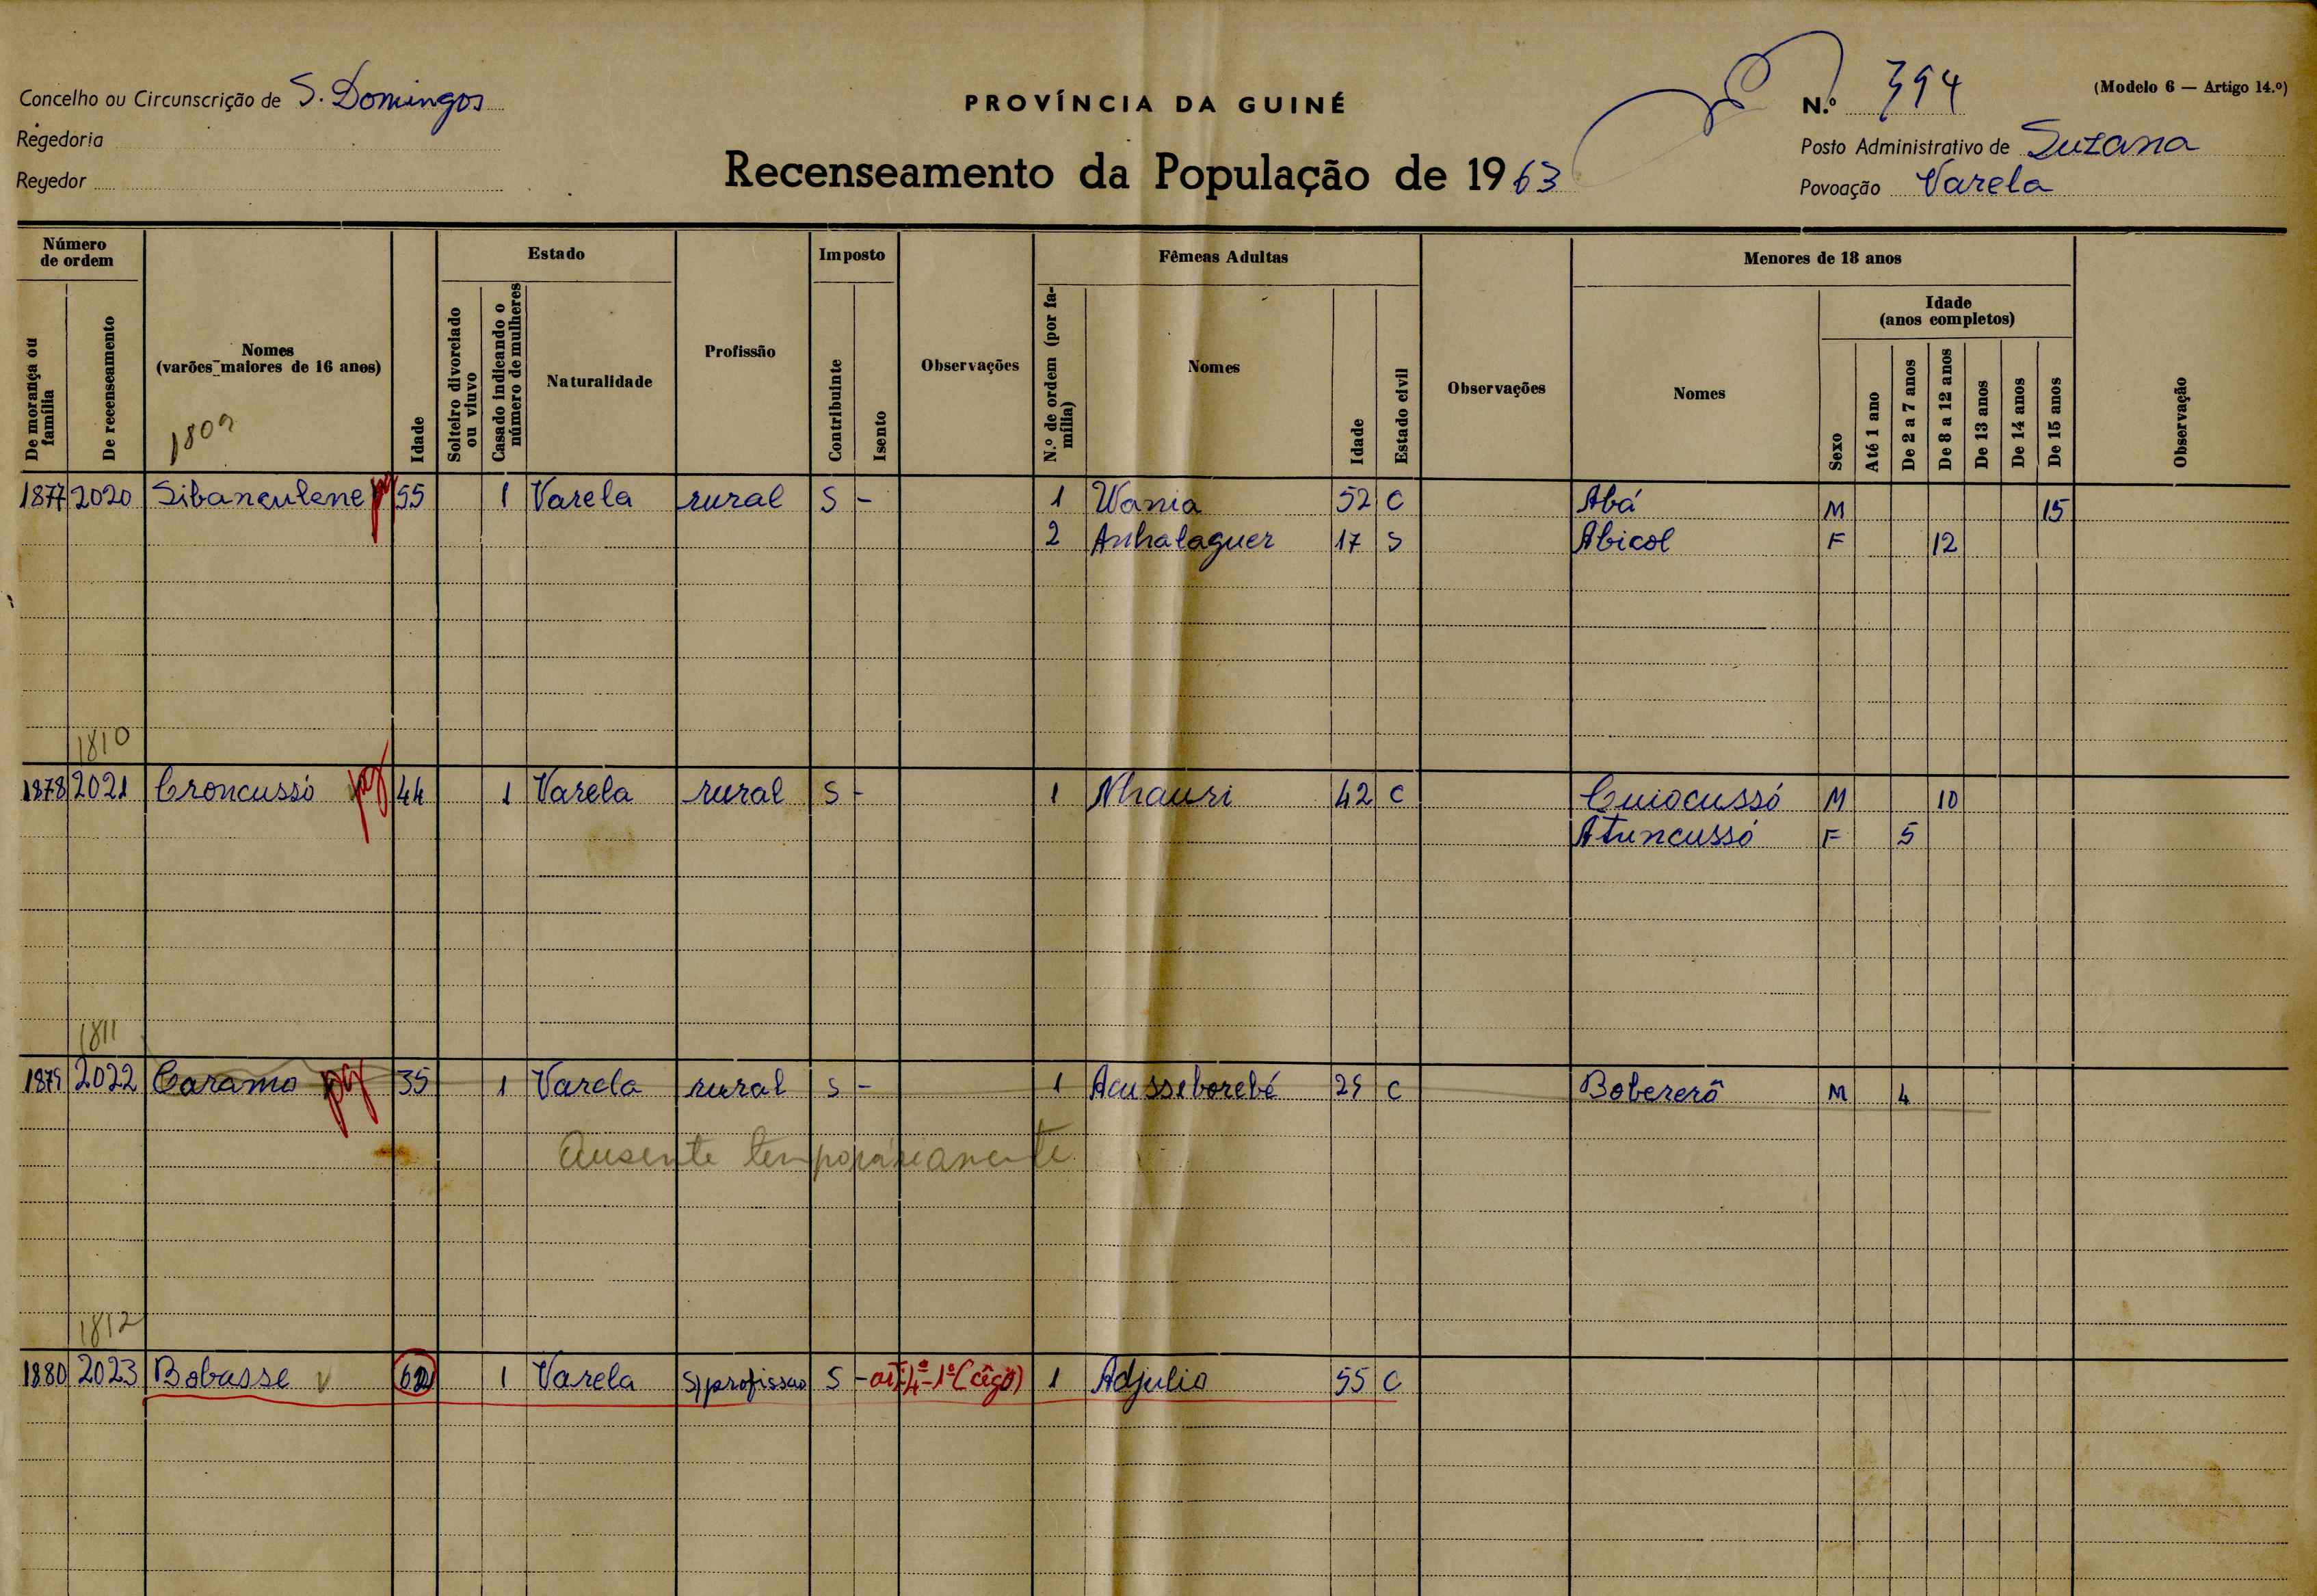 Concelho ou Circunscrição de S. Domingos
Regedoria
Regedor
PROVÍNCIA DA GUINÉ
Recenseamento da População de 1963
N.º 394
(Modelo 6 — Artigo 14.º)
Posto Administrativo de Suzana
Povoação Varela
Número de ordem
De morança ou família
De recenseamento
Nomes
(varões maiores de 16 anos)
1809
Idade
Estado
Solteiro divorciado ou viuvo
Casado indicando o número de mulheres
Naturalidade
Profissão
Imposto
Contribuinte
Isento
Observações
Fêmeas Adultas
N.º de ordem (por família)
Nomes
Idade
Estado civil
Observações
Menores de 18 anos
Nomes
Sexo
Idade
(anos completos)
Até 1 ano
De 2 a 7 anos
De 8 a 12 anos
De 13 anos
De 14 anos
De 15 anos
Observação
1877 2020 Sibanculene pg 55 1 Varela rural S - 1 Wania 52 C Abá M 15
2 Anhalaguer 17 S Abicol F 12
1810
1878 2021 Croncussó pg 44 1 Varela rural S - 1 Nhauri 42 C Cuiocussó M 10
Atuncussó F 5
1811
1879 2022 Caramo pg 35 1 Varela rural S - 1 Acusseborebé 29 C Bobererô M 4
Ausente temporáreamente
1812
1880 2023 Bobasse 1 Varela S/profissao S - artº 4º - 1º (cêgo) 1 Adjulio 55 C